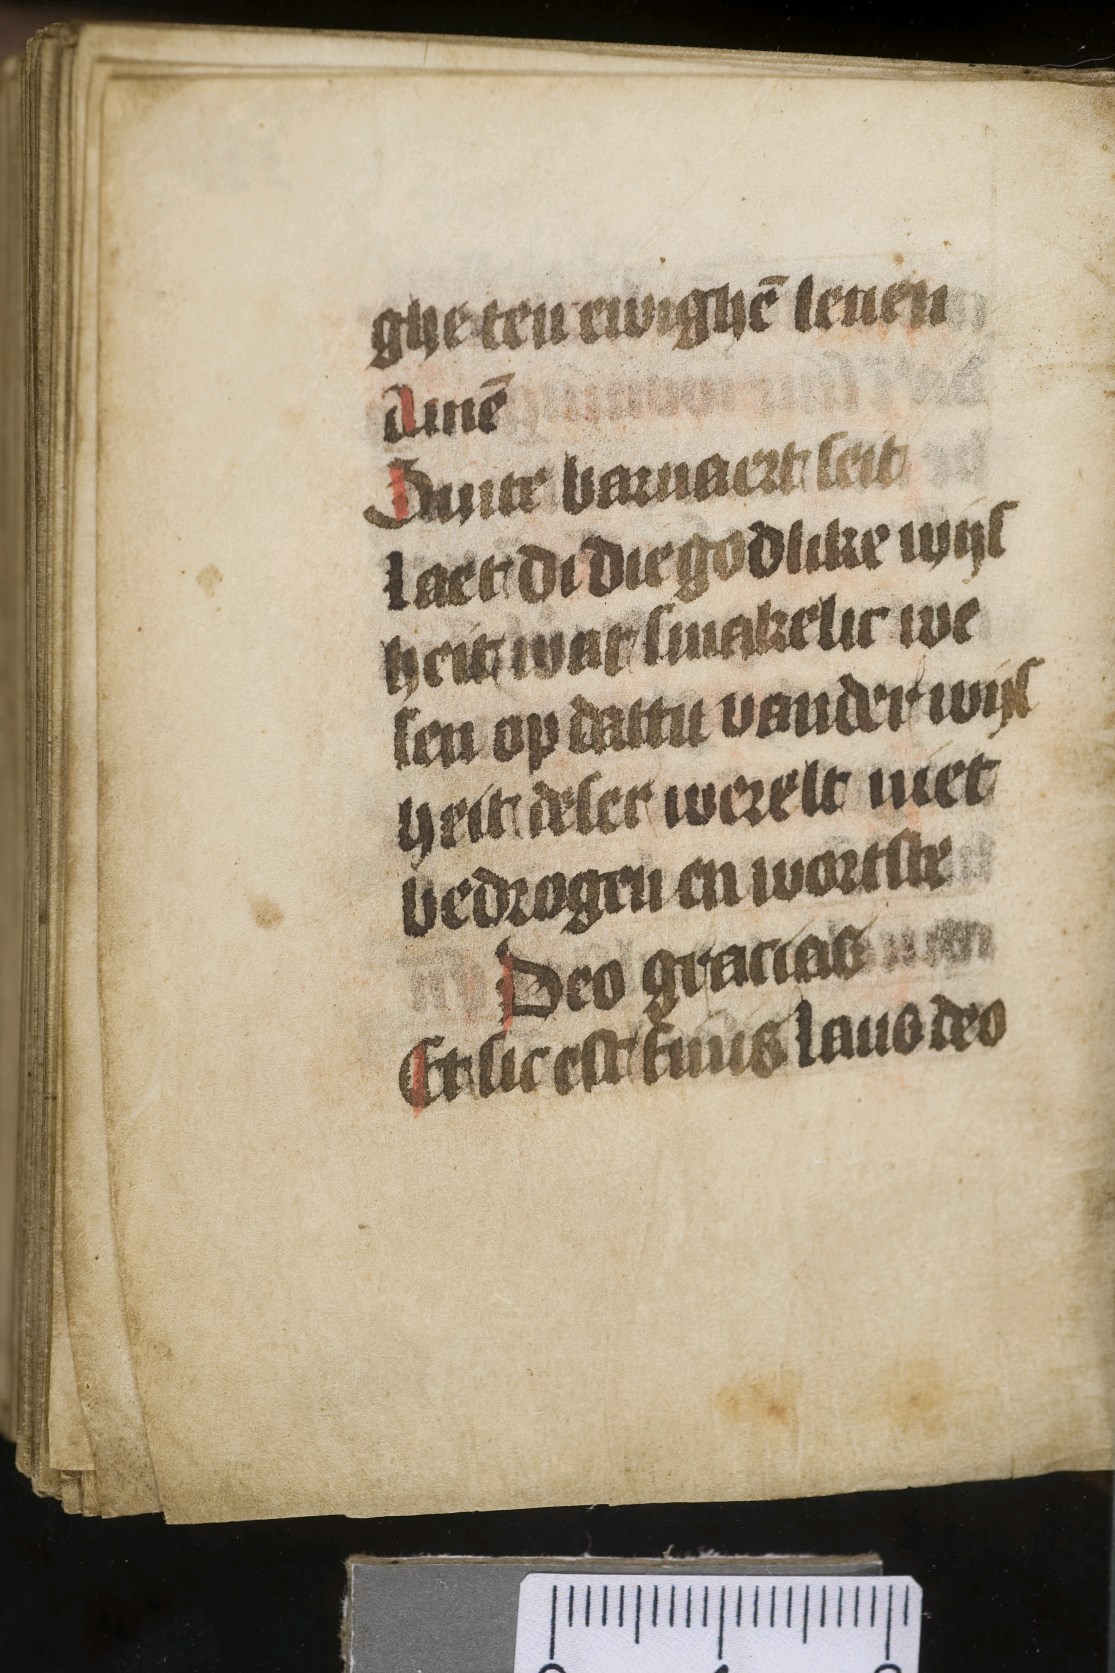 ghe ten ewighē leuen
Amē
Sunte barnaert seit
laet di die godlike wijs
heit wat smakelic we
sen op dattu vander wijs
heit deser werelt niet
bedrogen en wortste
Deo gracias
Et sic est finis laus deo